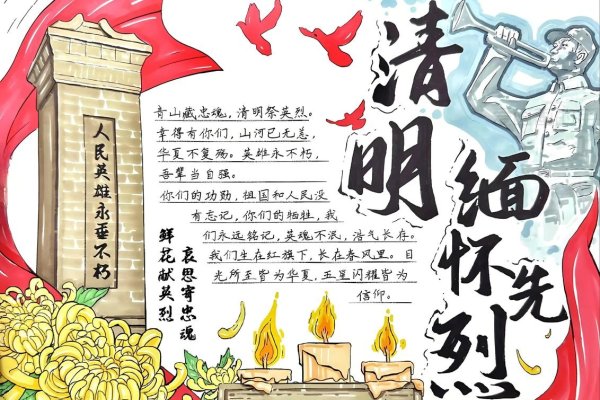 清明
缅怀
先烈
人民英雄永垂不朽
青山藏忠魂，清明祭英烈。
幸得有你们，山河已无恙，
华夏不复殇。英雄永不朽，
吾辈当自强。
你们的功勋，祖国和人民没
有忘记，你们的牺牲，我
们永远铭记，英魂不泯，浩气长存。
我们生在红旗下，长在春风里。目
光所至皆为华夏，五星闪耀皆为
信仰。
哀思寄忠魂
鲜花献英烈